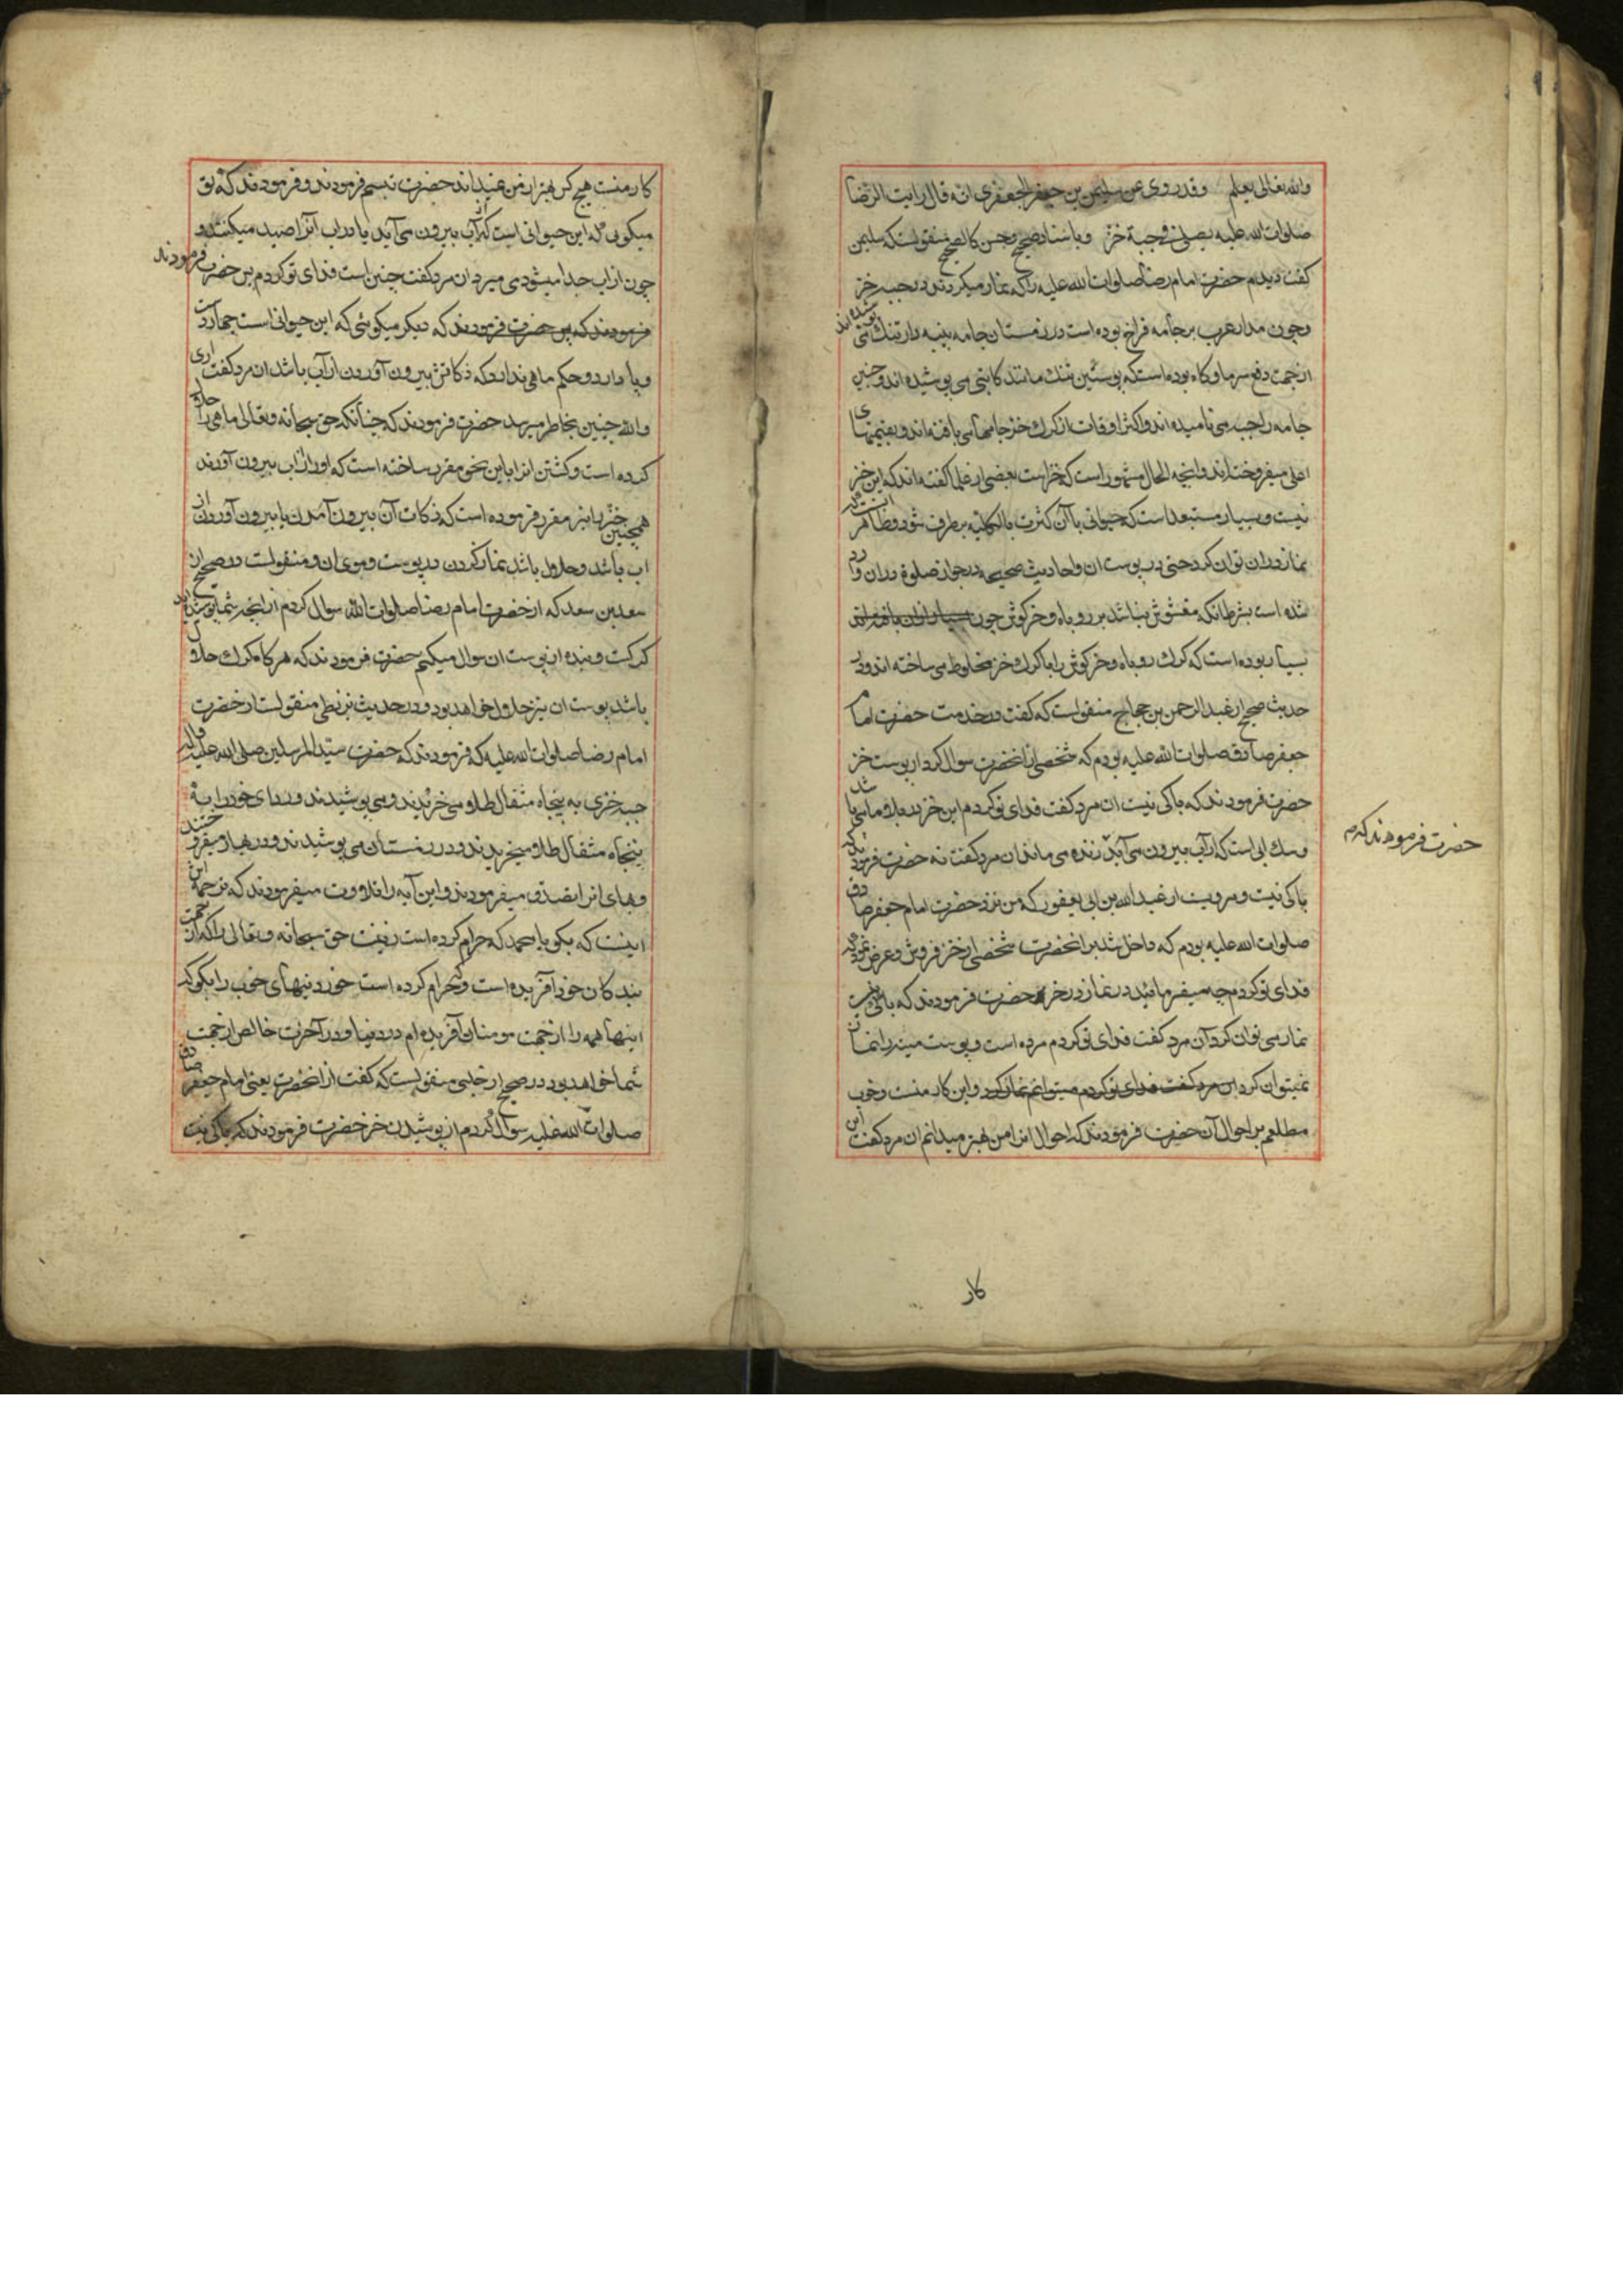 والله تعالی یعلم وقد روی عن سلیمن بن جعفر الجعفری انه قال رایت الرضا
صلوات الله علیه یصلی فی جبة خز و باسناد صحیح و حسن کالصحیح منقولست که سلیمن
کفت دیدم حضرت امام رضا صلوات الله علیه را که نماز میکردند در جبه خز
و چون مدار عرب بر جامه فراخ بوده است در زمستان جامه پنبه دار تنك می پوشیده اند
از جهت دفع سرما و کاه بوده است که پوستین تنك مانند کاتبی می پوشیده اند و چنین
جامه را جبه می نامیده اند و اکثر اوقات از کرك خز جامهای بافته اند و بقیمتهای
اعلی میفروخته اند و انچه الحال مشهور است که خز است بعضی از علما کفته اند که این خز
نیست و بسیار مستبعد است که حیوانی با آن کثرت بالکلیه برطرف شود و ظاهر انست که
نماز در ان توان کرد حتی در پوست ان و احادیث صحیحه در جواز صلوة در ان وارد
شده است بشرط انکه مغشوش نباشد بر روباه و خرکوش چون
بسیار بوده است که کرك روباه و خرکوش را با کرك خز مخلوط می ساخته اند و در
حدیث صحیح از عبد الرحمن بن حجاج منقولست که کفت در خدمت حضرت امام
جعفر صادق صلوات الله علیه بودم که شخصی از انحضرت سوال کرد از پوست خز
حضرت فرمودند که باکی نیست ان مرد کفت فدای تو کردم این خز در بلاد ما می باشد
و سك ابی است که از آب بیرون می آید زنده می ماند ان مرد کفت نه حضرت فرمودند که
حضرت فرمودند که
باکی نیست و مرویست از عبد الله بن ابی یعفور که من نزد حضرت امام جعفر صادق
صلوات الله علیه بودم که داخل شد بر انحضرت شخصی از خز فروش و عرض نمود که
فدای تو کردم چه میفرمائید در نماز در خز حضرت فرمودند که باکی نیست
نماز می توان کرد آن مرد کفت فدای تو کردم مرده است و پوست میته را نماز
نمیتوان کرد و این کار منست و خوب
مطلعم بر احوال آن حضرت فرمودند که احوال انرا من بهتر میدانم ان مرد کفت این
کار
کار منست هیچ کس بهتر از من نمیداند حضرت تبسم فرمودند و فرمودند که تو
میکویی که این حیوانی است که از آب بیرون می آید یا در اب آنرا صید میکنند و
چون از اب جدا میشود می میرد ان مرد کفت چنین است فدای تو کردم پس حضرت فرمودند
که دیکر میکوئی که این حیوانی است چهار دست
و پا دارد و حکم ماهی ندارد که ذکاتش بیرون آوردن از آب باشد ان مرد کفت اری
والله چنین بخاطر میرسد حضرت فرمودند که چنانکه حق سبحانه و تعالی ماهی را حلال
کرده است و کشتن انرا باین نحو مقرر ساخته است که او را از اب بیرون آورند
همچنین خز را نیز مقرر فرموده است که ذکات آن بیرون آمدن یا بیرون آوردن از
اب باشد و حلال باشد نماز کردن در پوست و موی ان و منقولست در صحیح از
سعد بن سعد که از حضرت امام رضا صلوات الله سوال کردم از انچه شما پوشیده اید
کرکست و بنده از پوست ان سوال میکنم حضرت فرمودند که هر کاه کرك حلال
باشد پوست ان نیز حلال خواهد بود و در حدیث بزنطی منقولست از حضرت
امام رضا صلوات الله علیه که فرمودند که حضرت سید المرسلین صلی الله علیه و اله
جبه خزی به پنجاه مثقال طلا می خریدند و می پوشیدند و ردای خز را به
پنجاه مثقال طلا میخریدند و در زمستان می پوشیدند و در بهار میفروختند
و بهای انرا تصدق میفرمودند و این آیه را تلاوت میفرمودند که ترجمه اش
اینست که بکو یا محمد که حرام کرده است زینت حق سبحانه و تعالی را که از جهت
بندکان خود آفریده است و که حرام کرده است خوردنیهای خوب را بکو که
اینها همه را از جهت مومنان آفریده ام در دنیا و در آخرت خالص از جهت
شما خواهد بود در صحیح از حلبی منقولست که کفت از انحضرت یعنی امام جعفر صادق
صلوات الله علیه سوال کردم از پوشیدن خز حضرت فرمودند که باکی نیست